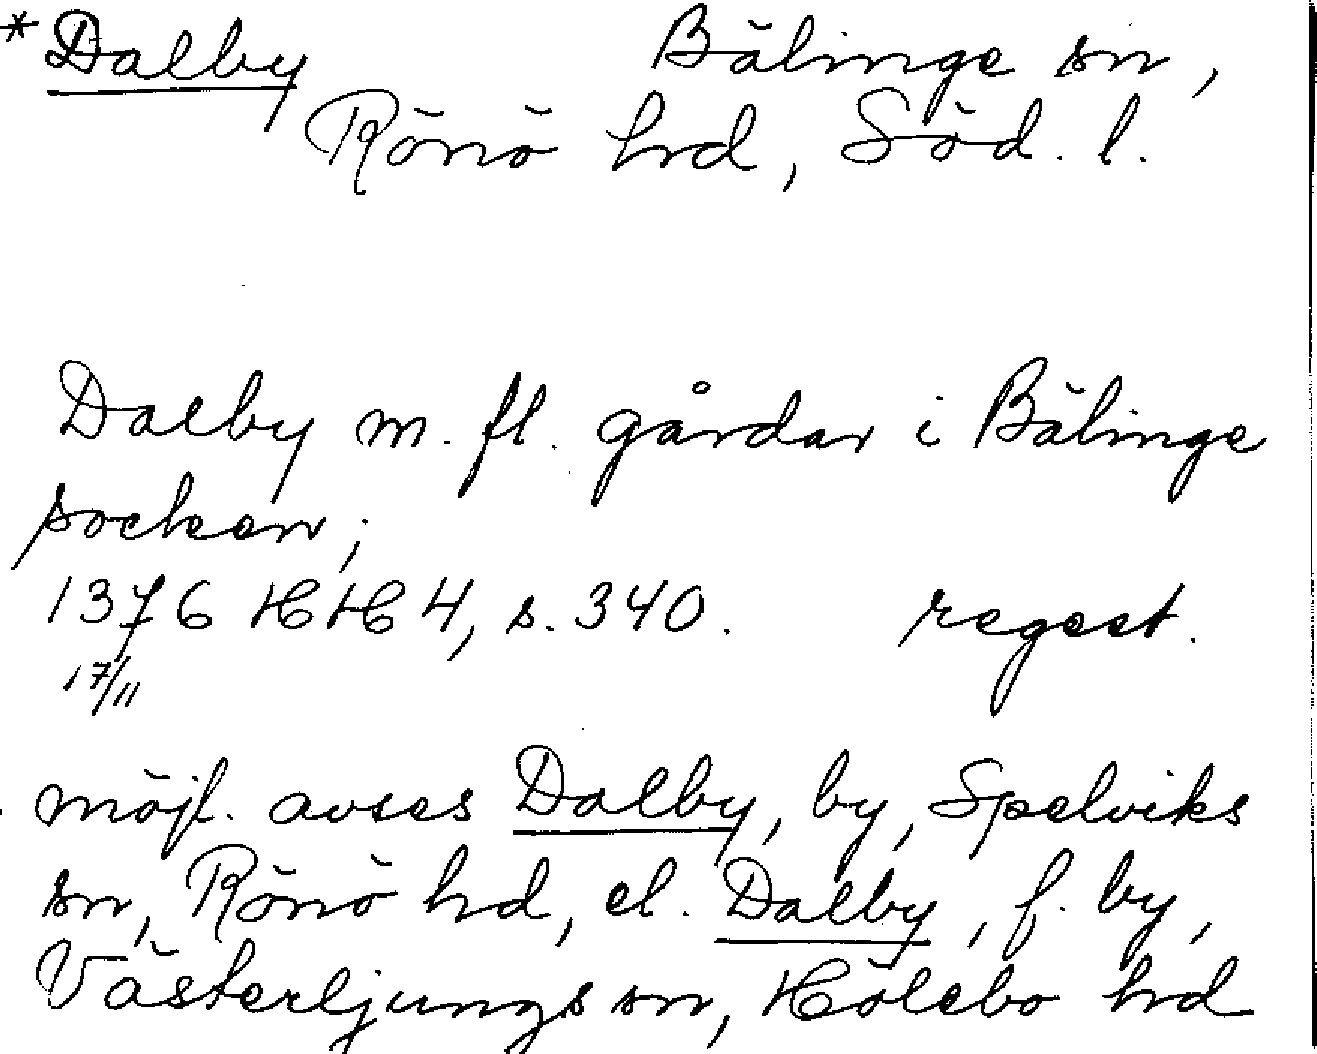 *Dalby Bälinge sn,
Rönö hrd, Söd. l.
Dalby m. fl. gårdar i Bälinge
socken;
1376 HH 4, s. 340. regest.
17/11
möjl. avses Dalby, by, Spelviks
sn, Rönö hrd, el. Dalby, f. by,
Västerljungs sn, Hölebo hrd